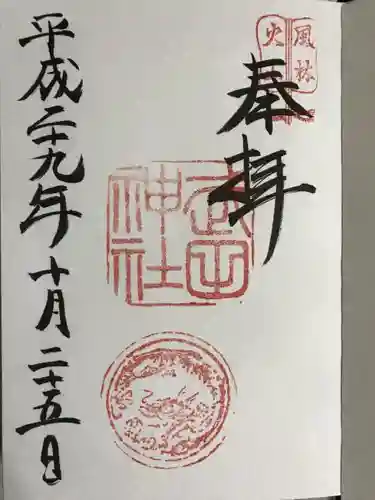 風林
火山
奉拝
武田
神社
平成二十九年十月二十五日